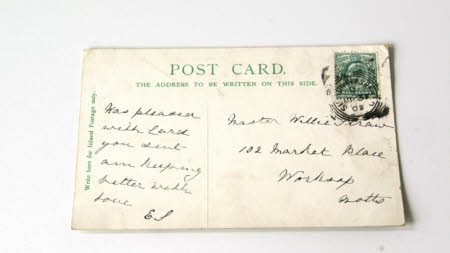 POST CARD.
THE ADDRESS TO BE WRITTEN ON THIS SIDE.
Write here for Inland Postage only.
Was pleased
with Card
you sent
am keeping
better with
love
ES
Master Willie Straw
102 Market Place
Worksop
Notts